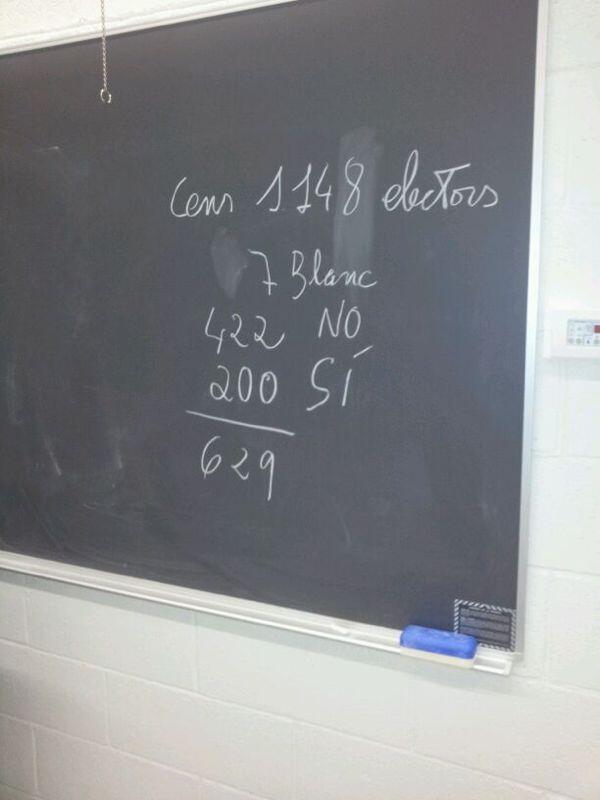 Cens 1148 electors
7 Blanc
422 NO
200 SÍ
629